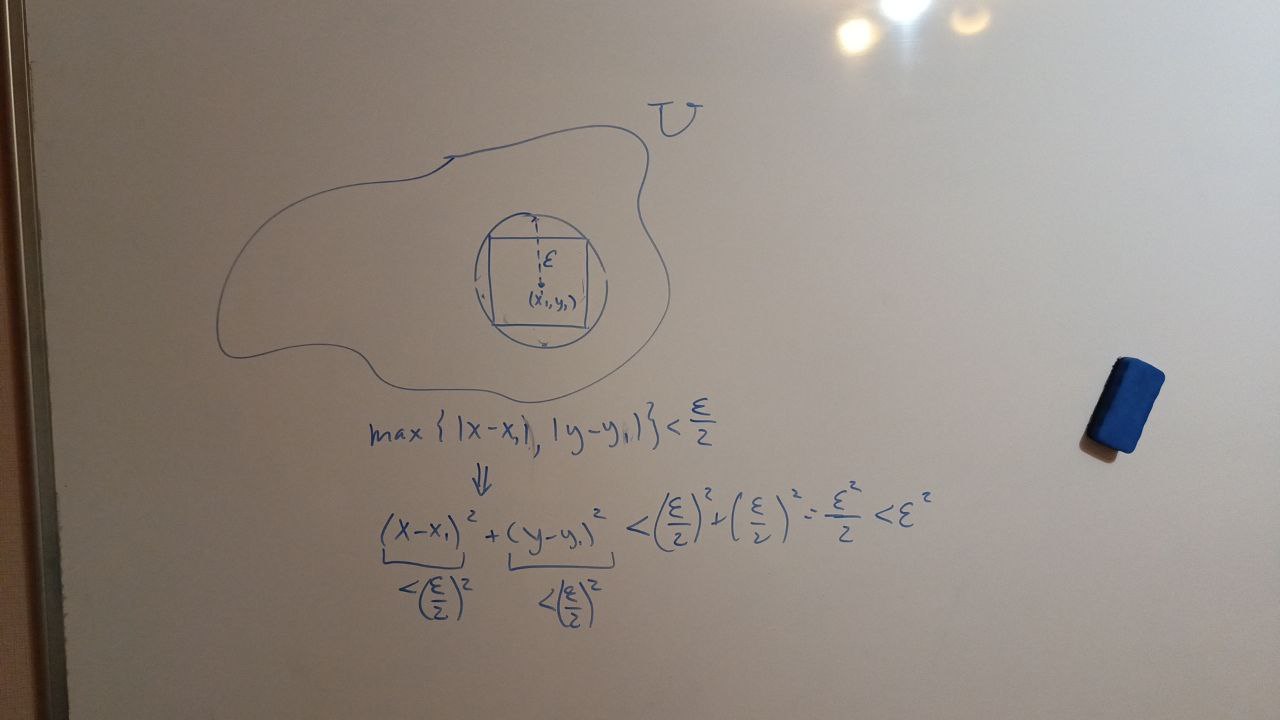 U
ε
(x₁, y₁)
max { |x - x₁|, |y - y₁| } < ε/2
⇓
(x - x₁)² + (y - y₁)² < (ε/2)² + (ε/2)² = ε²/2 < ε²
< (ε/2)² < (ε/2)²